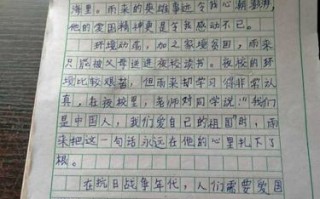 海里。雨来的英雄事迹令我心潮澎湃,
他的爱国精神更是令我感动不已。
环境动荡,加之家境贫困,雨来
只能被父母送进夜校读书。夜校的环
境比较艰苦,但雨来却学习得非常认
真,在夜校里,老师对同学说:“我们
是中国人,我们爱自己的祖国”时,雨
来把这一句话永远在他的心里扎下了
根。
在抗日战争年代,人们需要爱国